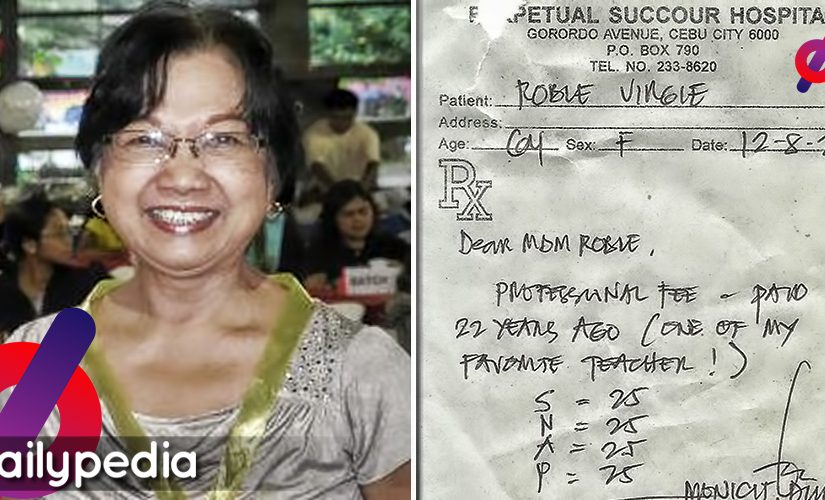 BATCH
ailypedia
PERPETUAL SUCCOUR HOSPITA
GORORDO AVENUE, CEBU CITY 6000
P.O. BOX 790
TEL. NO. 233-8620
Patient: ROBLE VIRGIE
Address:
Age: 64 Sex: F Date: 12-8-
Rx
Dear MDM ROBLE,
PROFESSIONAL FEE - PAID
22 YEARS AGO (ONE OF MY
FAVORITE TEACHER!)
S = 25
N = 25
A = 25
P = 25